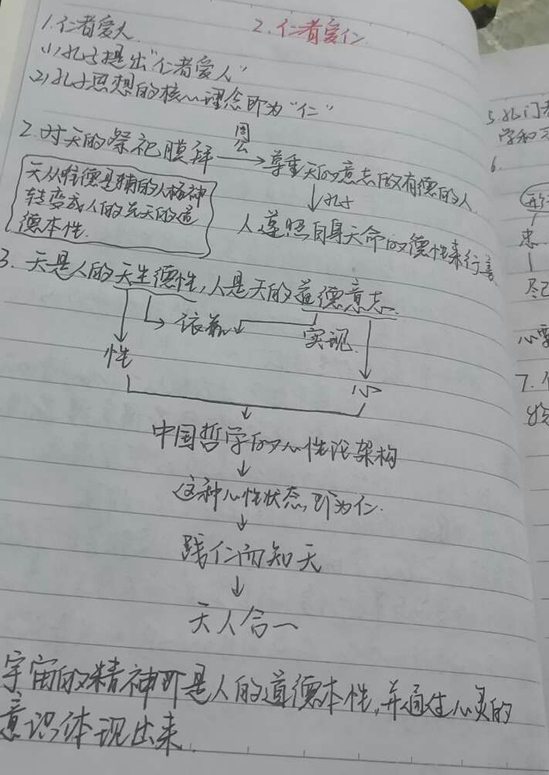 2.仁者爱仁
1.仁者爱人
(1)孔子提出“仁者爱人”
(2)孔子思想的核心理念即为“仁”
2.对天的祭祀膜拜 周公 尊重天的意志做有德的人
孔子
天从惟德是辅的人格神
转变成人的先天的道
德本性.
人遵照自身天命的德性来行善
3.天是人的天生德性,人是天的道德意志.
依靠 实现
性 心
中国哲学的心性论架构
这种心性状态,即为仁.
践仁而知天
天人合一
宇宙的精神即是人的道德本性,并通过心灵的
意识体现出来.
5.孔门
学和
6.
忠
尽己
心
7.